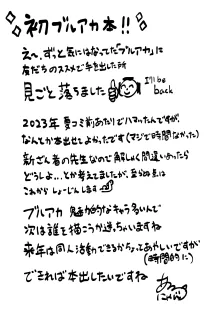 初ブルアカ本!!
え〜、ずっと気にはなってた「ブルアカ」に
友だちのススメで手を出した所
見ごと落ちました
I'll be
back
2023年夏コミ前あたりでハマったんですが、
なんとか本出せてよかったです(マジで時間なかった)
新ざん者の先生なので解しゃく間違いあったら
どうしよ...とか考えてましたが、至らぬ点は
これからしょーじんします
ブルアカ 魅力的なキャラ多いんで
次は誰を描こうか迷っちゃいますね
来年は同人活動できるかちょってあやしいですが
(時間的に)
できれば本出したいですね